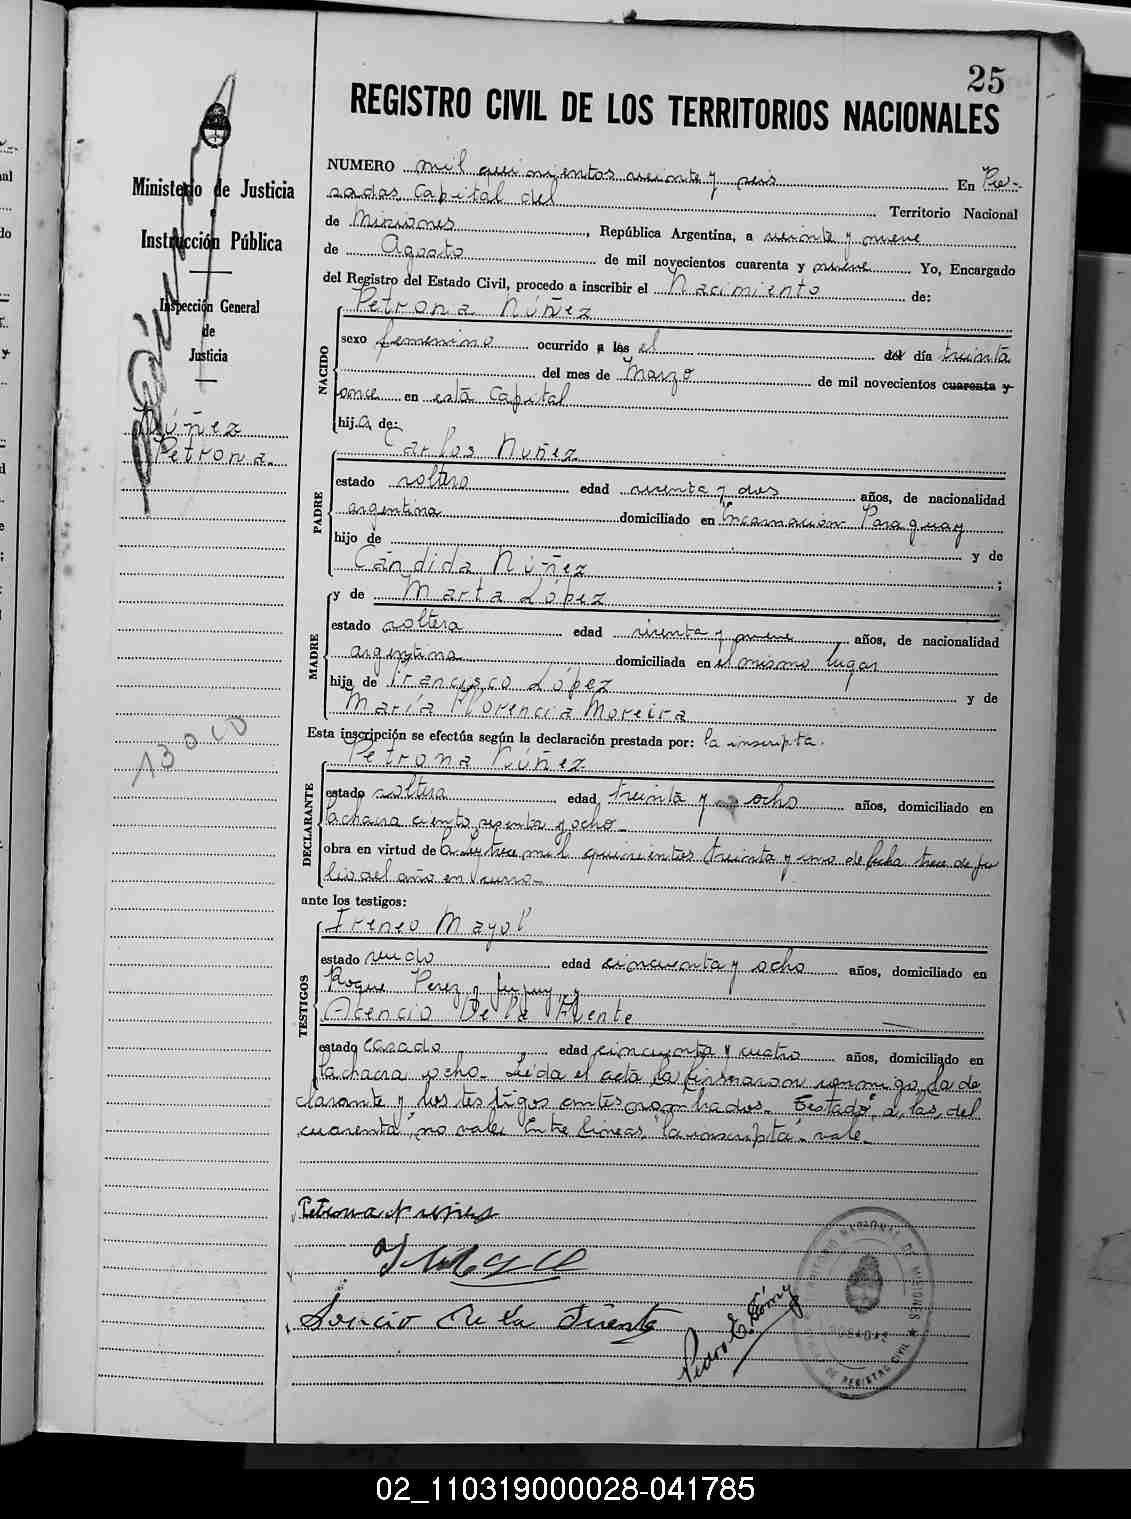 25
REGISTRO CIVIL DE LOS TERRITORIOS NACIONALES
Ministerio de Justicia
e
Instrucción Pública
Inspección General
de
Justicia
Núñez
Petrona.
13010
NUMERO mil quinientos veinte y seis En Po-
sadas, Capital del Territorio Nacional
de Misiones, República Argentina, a veinte y nueve
de Agosto de mil novecientos cuarenta y nueve Yo, Encargado
del Registro del Estado Civil, procedo a inscribir el Nacimiento de:
NACIDO
Petrona Núñez
sexo femenino ocurrido a las el del día treinta
del mes de Marzo de mil novecientos cuarenta y
once en esta Capital
hija de:
PADRE
Carlos Nuñez
estado soltero edad setenta y dos años, de nacionalidad
argentina domiciliado en Encarnación Paraguay
hijo de y de
Cándida Núñez ;
MADRE
y de Marta López
estado soltera edad sesenta y nueve años, de nacionalidad
argentina domiciliada en el mismo lugar
hija de Francisco López y de
María Florencia Moreira
Esta inscripción se efectúa según la declaración prestada por: la inscripta.
DECLARANTE
Petrona Núñez
estado soltera edad treinta y ocho años, domiciliado en
la chacra ciento sesenta y ocho
obra en virtud de la ley trece mil quinientos treinta y uno de fecha trece de ju
lio del año en curso
ante los testigos:
TESTIGOS
Ireneo Mayol
estado viudo edad cincuenta y ocho años, domiciliado en
Roque Perez y Jujuy y
Acencio De la Fuente
estado casado edad cincuenta y cuatro años, domiciliado en
la chacra ocho. Leída el acta la firmaron conmigo, la de
clarante y los testigos antes nombrados. Testado: a, las, del
cuarenta, no vale. Entre líneas "la inscripta" vale.
Petrona Nuñes
Asencio De la Fuente
Pedro E. Gómez
TERRITORIO NACIONAL DE MISIONES
POSADAS
DE REGISTRO CIVIL
02_110319000028-041785